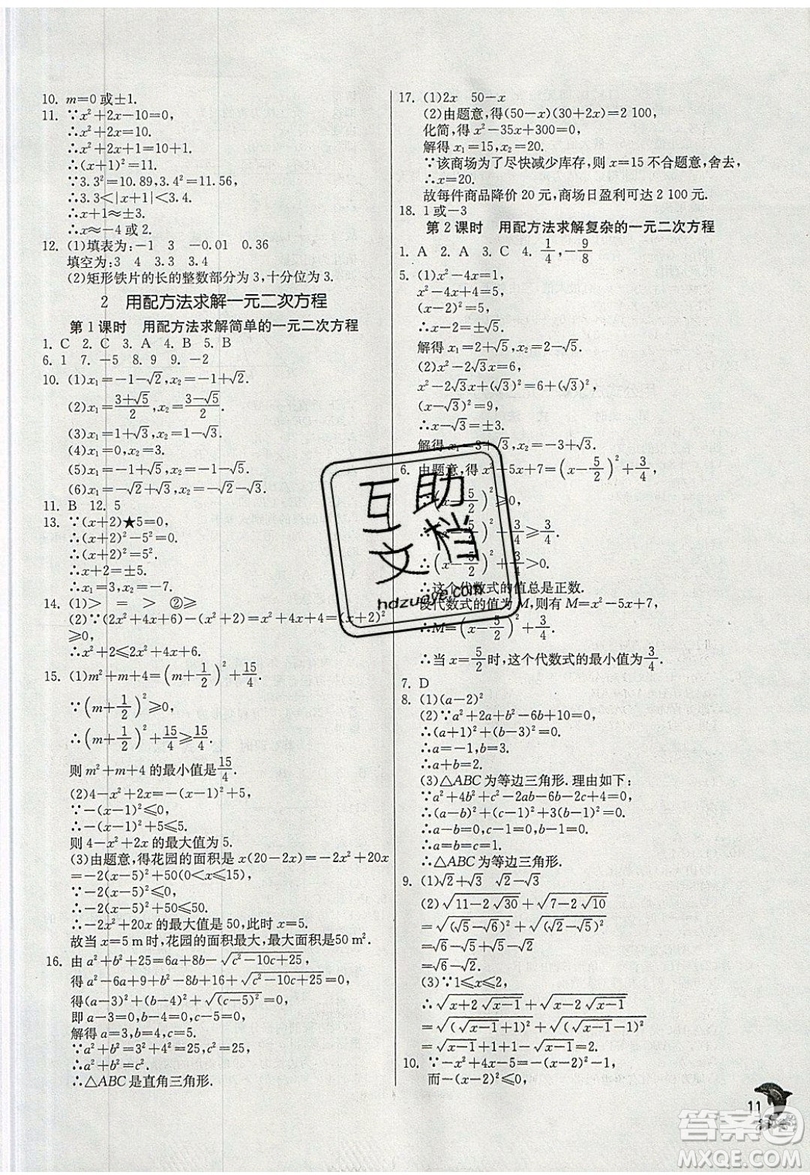 10. m=0或±1.
11. ∵x²+2x-10=0,
∴x²+2x=10.
∴x²+2x+1=10+1.
∴(x+1)²=11.
∵3.3²=10.89,3.4²=11.56.
∴3.3<|x+1|<3.4.
∴x+1≈±3.
∴x≈-4或2.
12. (1)填表为:-1 3 -0.01 0.36
填空为:3 4 3.3 3.4
(2)矩形铁片的长的整数部分为3,十分位为3.
2 用配方法求解一元二次方程
第1课时 用配方法求解简单的一元二次方程
1. C 2. C 3. A 4. B 5. B
6. 1 7. -5 8. 9 9. -2
10. (1)x₁=-1-√2,x₂=-1+√2.
(2)x₁=(3+√5)/2,x₂=(3-√5)/2.
(3)x₁=1+√6,x₂=1-√6.
(4)x₁=0,x₂=2.
(5)x₁=-1+√3,x₂=-1-√3.
(6)x₁=-√2+√3,x₂=-√2-√3.
11. B 12. 5
13. ∵(x+2)★5=0,
∴(x+2)²-5²=0.
∴x+2=±5.
∴x₁=3,x₂=-7.
14. (1)> = > ②≥
(2)∵(2x²+4x+6)-(x²+2)=x²+4x+4=(x+2)²
≥0,
∴x²+2≤2x²+4x+6.
15. (1)m²+m+4=(m+1/2)²+15/4.
∵(m+1/2)²≥0,
∴(m+1/2)²+15/4≥15/4.
则m²+m+4的最小值是15/4.
(2)4-x²+2x=-(x-1)²+5.
∵-(x-1)²≤0,
∴-(x-1)²+5≤5.
则4-x²+2x的最大值为5.
(3)由题意,得花园的面积是x(20-2x)=-2x²+20x
=-2(x-5)²+50.
∵-2(x-5)²≤0,
∴-2(x-5)²+50≤50.
∴-2x²+20x的最大值是50,此时x=5.
故当x=5 m时,花园的面积最大,最大面积是50 m².
16. 由a²+b²+25=6a+8b-√(c²-10c+25),
得a²-6a+9+b²-8b+16+√(c²-10c+25)=0,
得(a-3)²+(b-4)²+√((c-5)²)=0,
即a-3=0,b-4=0,c-5=0,
解得a=3,b=4,c=5.
∵a²+b²=25,c²=25,
∴a²+b²=c².
∴△ABC是直角三角形.
17. (1)2x 50-x
(2)由题意,得(50-x)(30+2x)=2 100,
化简,得x²-35x+300=0,
解得x₁=15,x₂=20.
∵该商场为了尽快减少库存,则x=15不合题意,舍去.
∴x=20.
故每件商品降价20元,商场日盈利可达2 100元.
18. 1或-3
第2课时 用配方法求解复杂的一元二次方程
1. A 2. A 3. C 4. 1/4,-9/8
5. (1)x²-4x=1,
x²-4x+4=1+4,
(x-2)²=5.
∴x-2=±√5.
解得x₁=2+√5,x₂=2-√5.
(2)x²-2√3x=6,
x²-2√3x+(√3)²=6+(√3)²,
(x-√3)²=9,
∴x-√3=±3.
解得x₁=3+√3,x₂=-3+√3.
6. 由题意,得x²-5x+7=(x-5/2)²+3/4.
∵(x-5/2)²≥0,
∴(x-5/2)²+3/4≥3/4.
∴(x-5/2)²+3/4>0.
∴这个代数式的值总是正数.
设代数式的值为M,则有M=x²-5x+7,
∴M=(x-5/2)²+3/4.
∴当x=5/2时,这个代数式的最小值为3/4.
7. D
8. (1)(a-2)²
(2)∵a²+2a+b²-6b+10=0,
∴(a+1)²+(b-3)²=0.
∴a=-1,b=3.
∴a+b=2.
(3)△ABC为等边三角形.理由如下:
∵a²+4b²+c²-2ab-6b-2c+4=0,
∴(a-b)²+(c-1)²+3(b-1)²=0.
∴a-b=0,c-1=0,b-1=0.
∴a=b=c=1.
∴△ABC为等边三角形.
9. (1)√2+√3 √2+√3
(2)√(11-2√30)+√(7-2√10)
=√((√6-√5)²)+√((√5-√2)²)
=√6-√5+√5-√2
=√6-√2.
(3)∵1≤x≤2,
∴√(x+2√(x-1))+√(x-2√(x-1))
=√((√(x-1)+1)²)+√((√(x-1)-1)²)
=√(x-1)+1+1-√(x-1)=2.
10. ∵-x²+4x-5=-(x-2)²-1,
而-(x-2)²≤0,
互助
文档
hdzuoye.com
11
答案圈
MXQE.COM